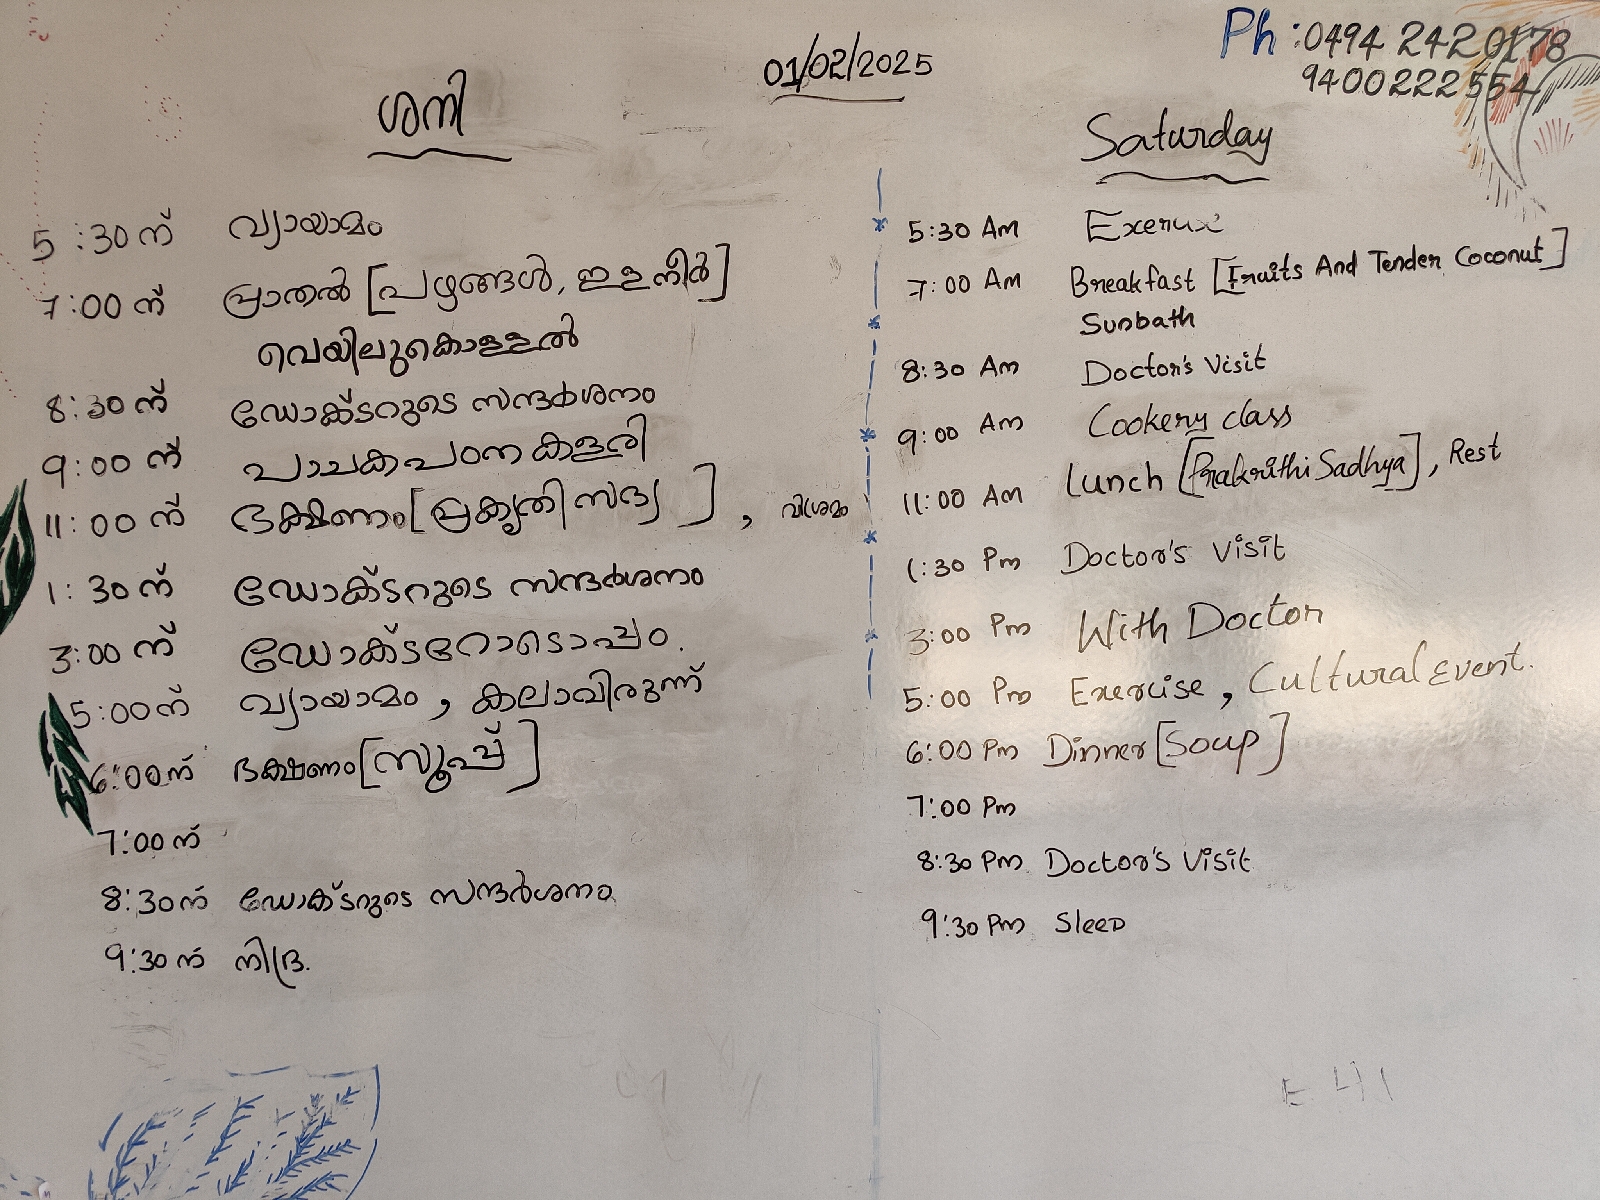 Ph : 0494 2420178
9400222554
01/02/2025
ശനി
5:30 ന് വ്യായാമം
7:00 ന് പ്രാതൽ [പഴങ്ങൾ, ഇളനീർ]
വെയിലുകൊള്ളൽ
8:30 ന് ഡോക്ടറുടെ സന്ദർശനം
9:00 ന് പാചകപഠന കളരി
11:00 ന് ഭക്ഷണം [പ്രകൃതി സദ്യ], വിശ്രമം
1:30 ന് ഡോക്ടറുടെ സന്ദർശനം
3:00 ന് ഡോക്ടറോടൊപ്പം.
5:00 ന് വ്യായാമം, കലാവിരുന്ന്
6:00 ന് ഭക്ഷണം [സൂപ്പ്]
7:00 ന്
8:30 ന് ഡോക്ടറുടെ സന്ദർശനം
9:30 ന് നിദ്ര.
Saturday
5:30 Am Exercise
7:00 Am Breakfast [Fruits And Tender Coconut]
Sunbath
8:30 Am Doctor's Visit
9:00 Am Cookery class
11:00 Am Lunch [Prakrithi Sadhya], Rest
1:30 Pm Doctor's Visit
3:00 Pm With Doctor
5:00 Pm Exercise, Cultural Event.
6:00 Pm Dinner [Soup]
7:00 Pm
8:30 Pm Doctor's Visit
9:30 Pm Sleep